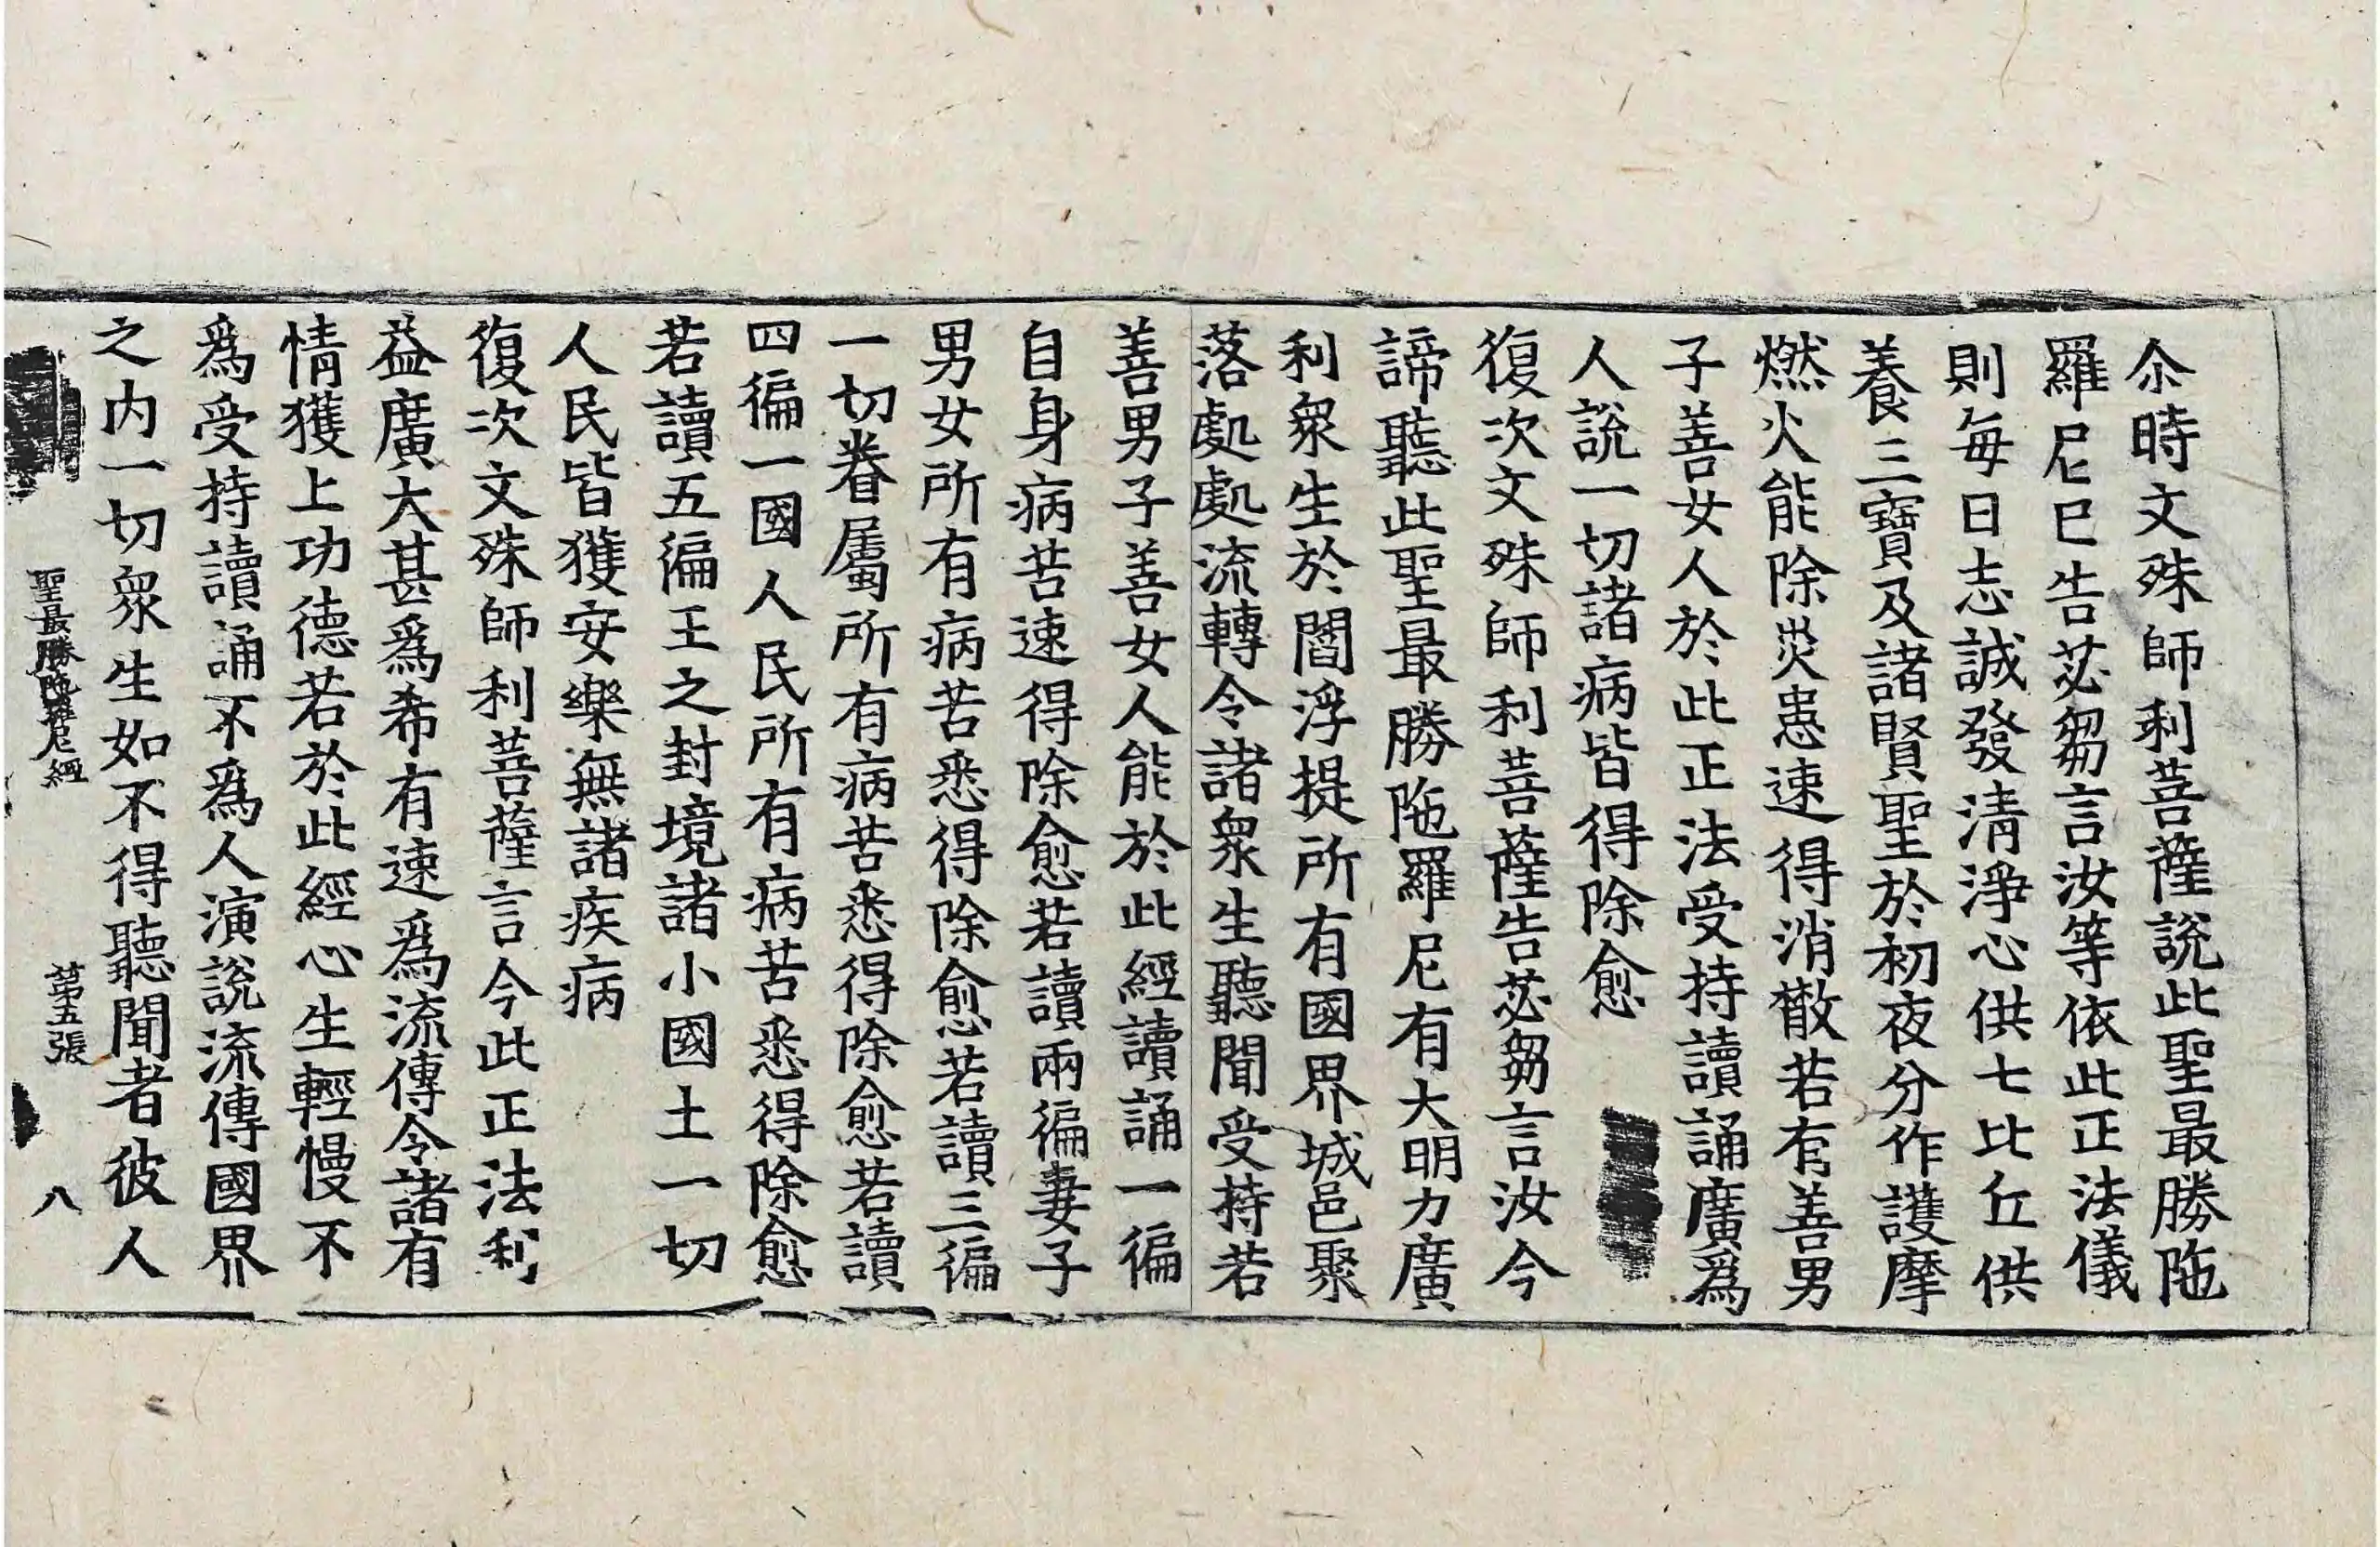 尒時文殊師利菩薩說此聖最勝陁
羅尼已告苾芻言汝等依此正法儀
則每日志誠發淸淨心供七比丘供
養三寶及諸賢聖於初夜分作護摩
燃火能除災患速得消散若有善男
子善女人於此正法受持讀誦廣爲
人說一切諸病皆得除愈
復次文殊師利菩薩告苾芻言汝今
諦聽此聖最勝陁羅尼有大明力廣
利衆生於閻浮提所有國界城邑聚
落處處流轉令諸衆生聽聞受持若
善男子善女人能於此經讀誦一徧
自身病苦速得除愈若讀兩徧妻子
男女所有病苦悉得除愈若讀三徧
一切眷屬所有病苦悉得除愈若讀
四徧一國人民所有病苦悉得除愈
若讀五徧王之封境諸小國土一切
人民皆獲安樂無諸疾病
復次文殊師利菩薩言今此正法利
益廣大甚爲希有速爲流傳令諸有
情獲上功德若於此經心生輕慢不
爲受持讀誦不爲人演說流傳國界
之内一切衆生如不得聽聞者彼人
聖最勝陁羅尼經 第五張 八